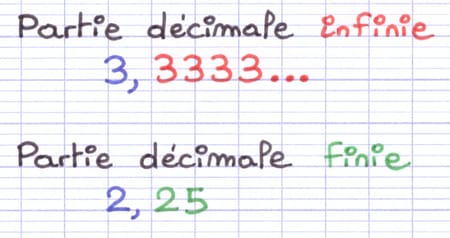 Partie décimale infinie
3, 3333...
Partie décimale finie
2, 25